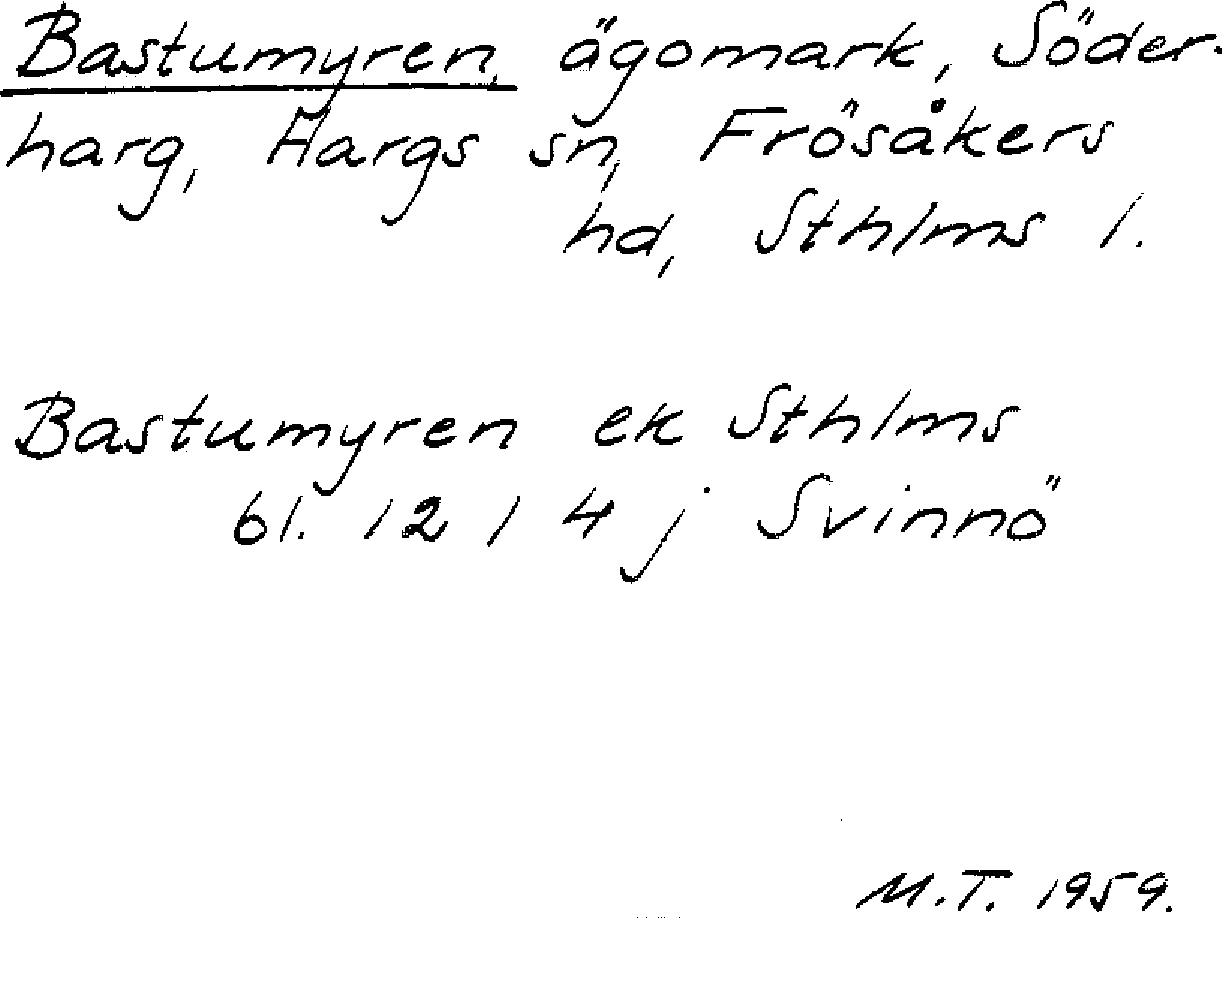 Bastumyren, ägomark, Söder-
harg, Hargs sn, Frösåkers
hd, Sthlms l.
Bastumyren ek Sthlms
bl. 12 I 4 j Svinnö
M.T. 1959.